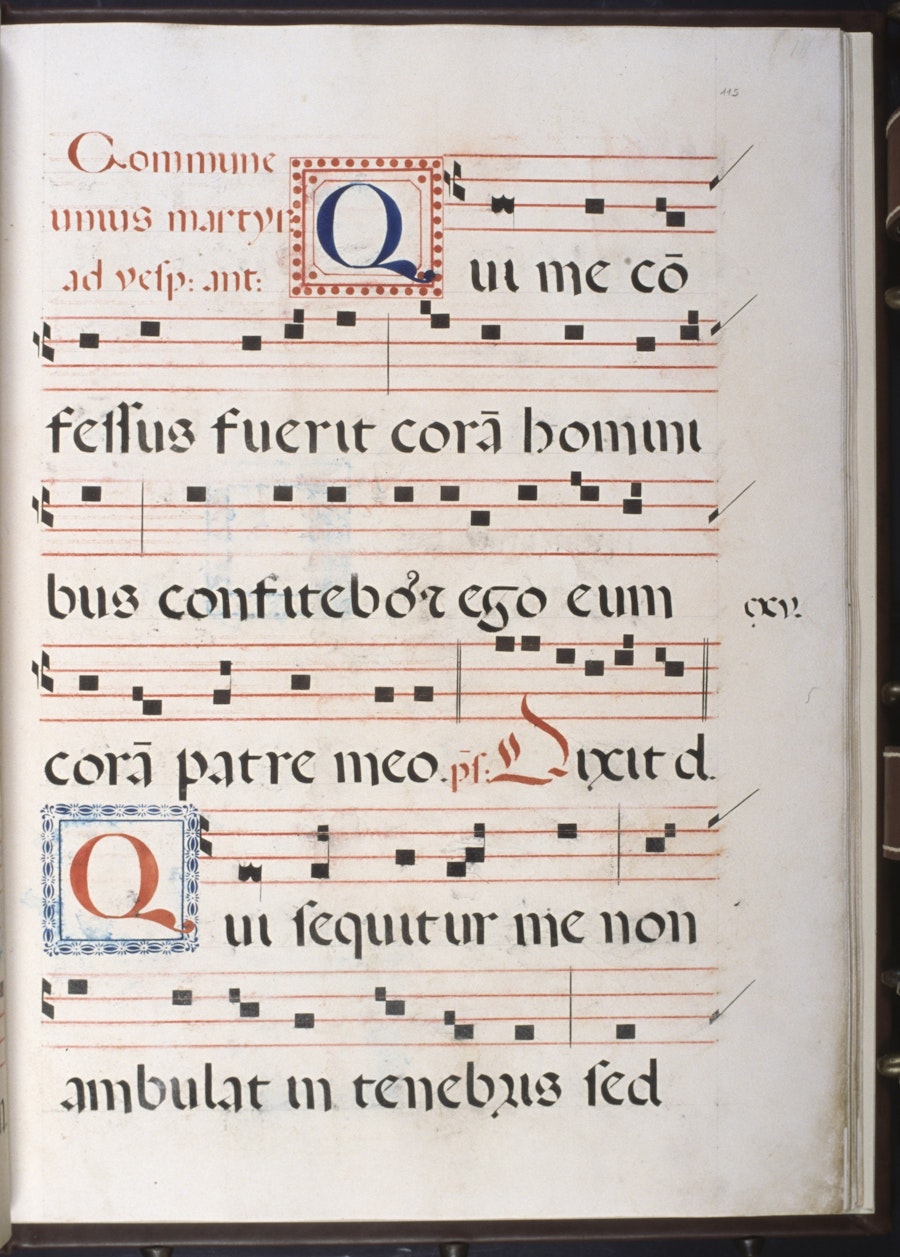 115
Commune
unius martyr:
ad vesp: ant:
Qui me cō
feſſus fuerit corā homini
bus confitebor ꝛ ego eum
cxv.
corā patre meo. ps: Dixit d.
Qui ſequitur me non
ambulat in tenebꝛis ſed